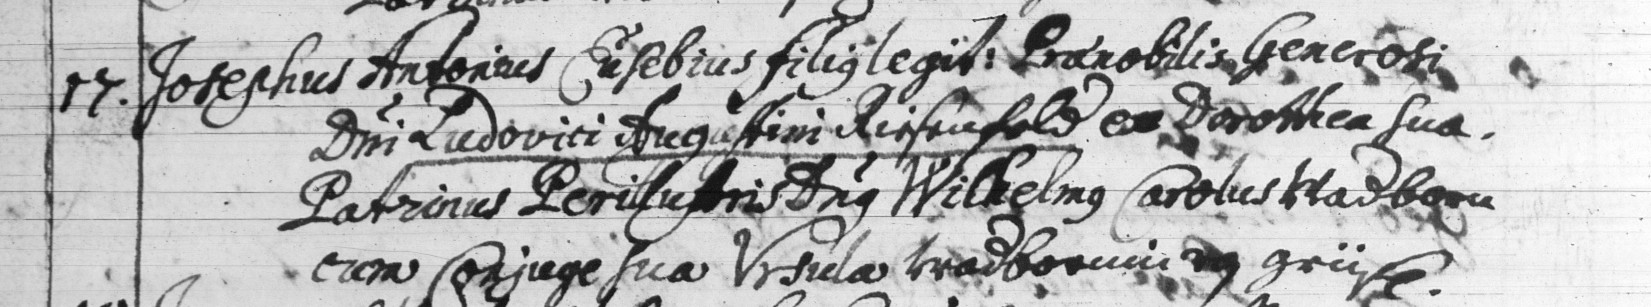 17. Josephus Antonius Eusebius filig legit: Prænobilis Generosi
Dni Ludovici Augustini Riesenfeld ex Dorothea sua.
Patrinus Perillustris Dng Wilhelmg Carolus Wadborn
cum Conjuge sua Vrsula wadbornin